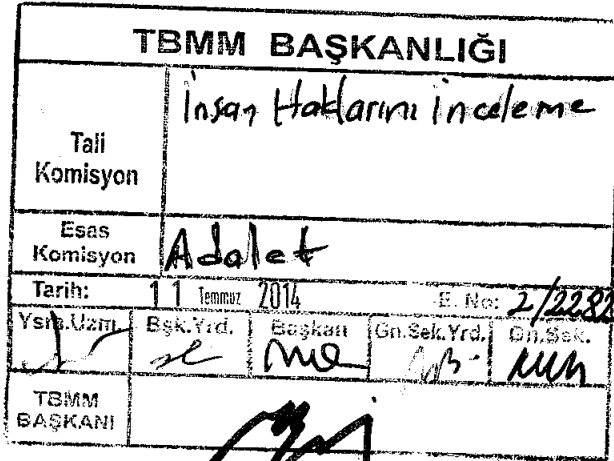 TBMM BAŞKANLIĞI
Tali Komisyon
İnsan Haklarını İnceleme
Esas Komisyon
Adalet
Tarih: 11 Temmuz 2014 E. No: 2/2282
Ysm.Uzm. Bşk.Yrd. Başkan Gn.Sek.Yrd. Gn.Sek.
TBMM BAŞKANI